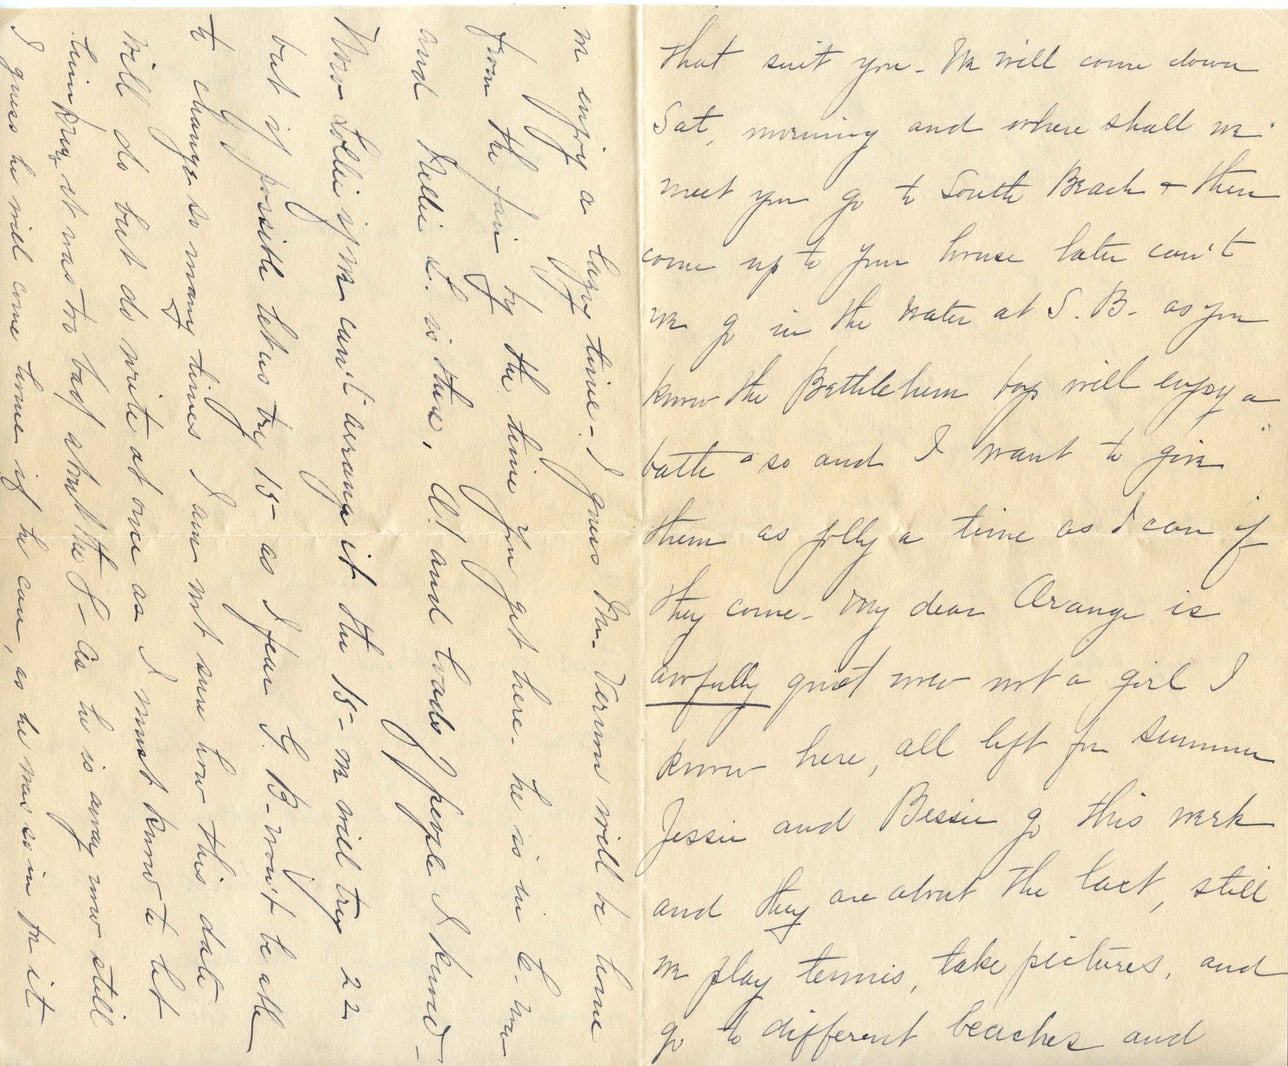 that suit you - We will come down
Sat. morning and where shall we
meet you go to South Beach + then
come up to your house later can't
we go in the water at S. B. as you
know the Bethlehem boys will enjoy a
bathe so and I want to give
them as jolly a time as I can if
they come - My dear Orange is
awfully quiet now not a girl I
know here, all left for summer
Jessie and Bessie go this week
and they are about the last, still
we play tennis, take pictures, and
go to different beaches and
we enjoy a lazy time - I guess Mr. Vernon will be home
from the by the time you get here - he is in C. now
and Nellie L. is there, Al and loads of people I know -
Now Lollie if we can't arrange it the 15 - we will try 22
but if possible let us try 15 - as I fear G. B. won't be able
to change so many times I am not sure how this date
will do but do write at once as I must know to let
him know it was too bad about the G - as he is away now still
I guess he will come home if he can, as he was so in for it